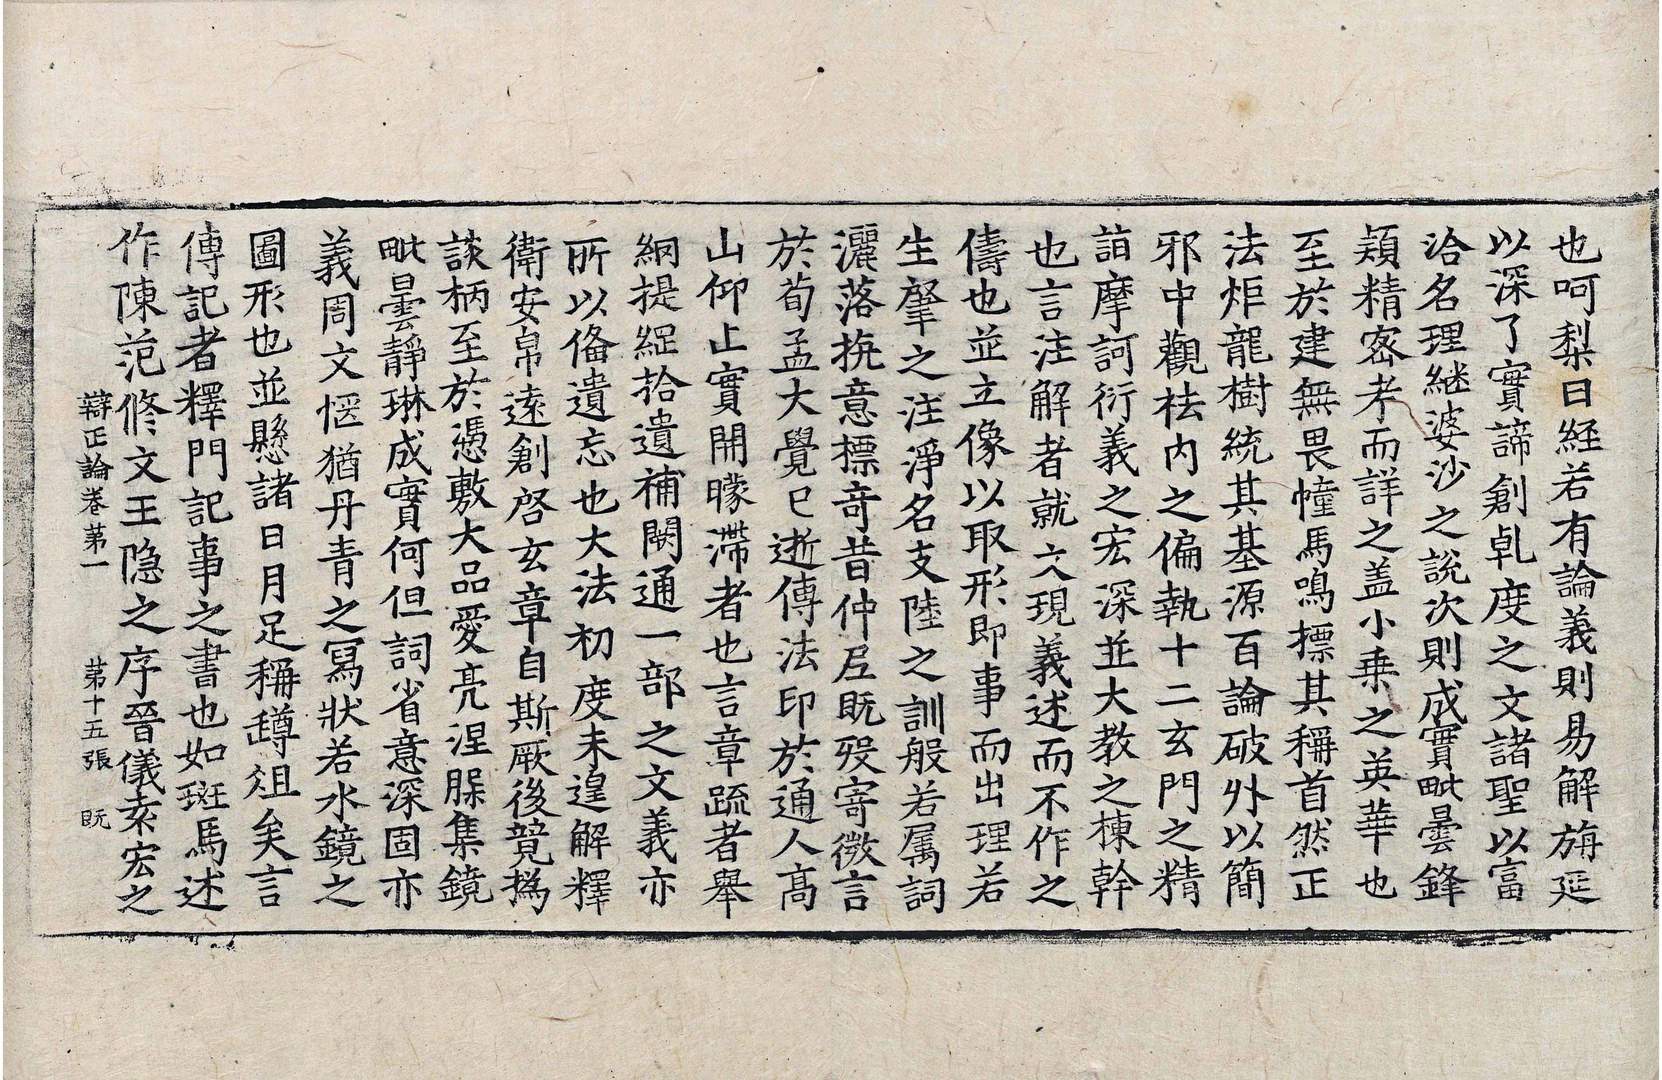 也呵梨曰経若有論義則易解旃延
以深了實諦創乹度之文諸聖以富
洽名理継婆沙之說次則成實毗曇鋒
穎精宻考而詳之盖小乗之英華也
至於建無畏幢馬鳴摽其稱首然正
法炬龍樹統其基源百論破外以簡
邪中觀袪内之偏執十二玄門之精
詣摩訶衍義之宏深並大教之棟幹
也言注解者就文現義述而不作之
儔也並立像以取形即事而出理若
生肇之注淨名支陸之訓般若属詞
灑落挩意標竒昔仲尼既歿寄微言
於荀孟大覺已逝傳法印於通人髙
山仰止實開曚滯者也言章䟽者舉
網提綱拾遺補闕通一部之文義亦
所以俻遺忘也大法初度未遑解釋
衛安帛逺創啓玄章自斯厥後競撝
談柄至於憑敷大品愛亮涅槃集鏡
毗曇靜琳成實何但詞省意深固亦
義周文愜猶丹青之冩狀若水鏡之
圖形也並懸諸日月足稱蹲俎矣言
傳記者釋門記事之書也如班馬述
作陳范修文王隐之序晉儀素宏之
辯正論卷第一　第十五張　旣